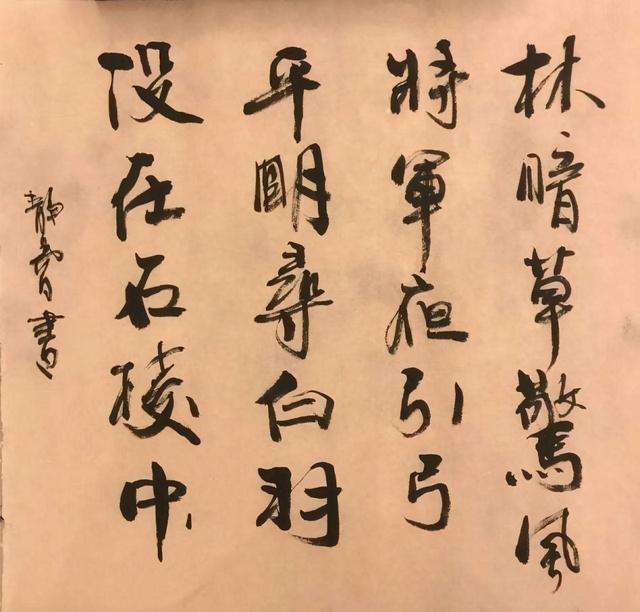 林暗草驚風
將軍夜引弓
平明尋白羽
没在石棱中
書